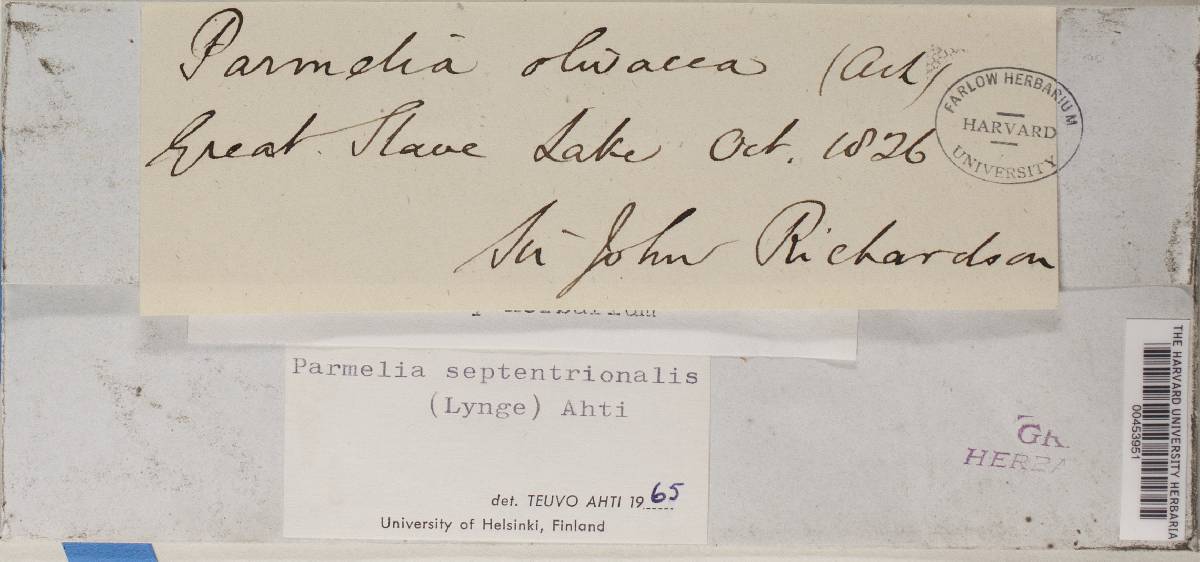 Parmelia olivacea (Ach)
Great Slave Lake Oct. 1826
Sir John Richardson
FARLOW HERBARIUM
HARVARD
UNIVERSITY
Herbarium
Parmelia septentrionalis
(Lynge) Ahti
det. TEUVO AHTI 1965
University of Helsinki, Finland
GR
HERBA
THE HARVARD UNIVERSITY HERBARIA
00453951